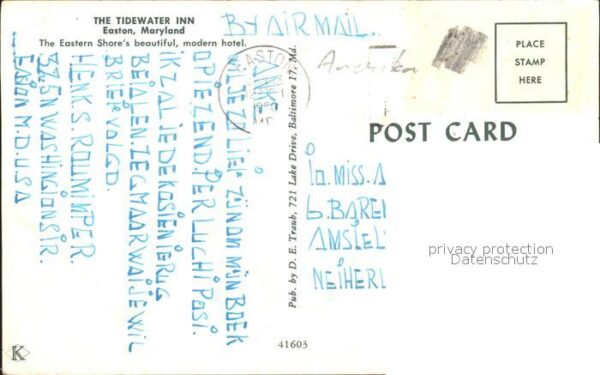 THE TIDEWATER INN
Easton, Maryland
The Eastern Shore's beautiful, modern hotel.
BY AIR MAIL.
PLACE
STAMP
HERE
POST CARD
Pub. by D. E. Traub, 721 Lake Drive, Baltimore 17, Md.
ANKE
WIL JE ZO LIEF ZIJN OM MIJN BOEK
OP TE ZENDEN PER LUCHT POST.
IK ZAL JE DE KOSTEN TERUG
BETALEN. ZEG MAAR WAT JE WIL
BRIEF VOLGD.
HENK S. ROLVINK PER.
325 N WASHINGTON STR.
EASTON M.D. U.S.A
Miss. A
6. BAREN
AMSTEL
NETHERL
privacy protection
Datenschutz
41603
K